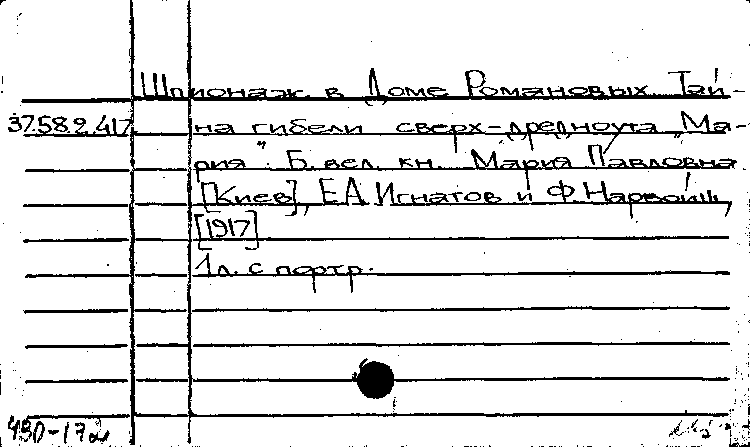 Шпионаж в Доме Романовых. Тай-
37.58.2.417 на гибели сверх-дредноута „Ма-
рия". Б. вел. кн. Мария Павловна
[Киев], Е.А. Игнатов и Ф.
[1917]
1 л. с портр.
490-172